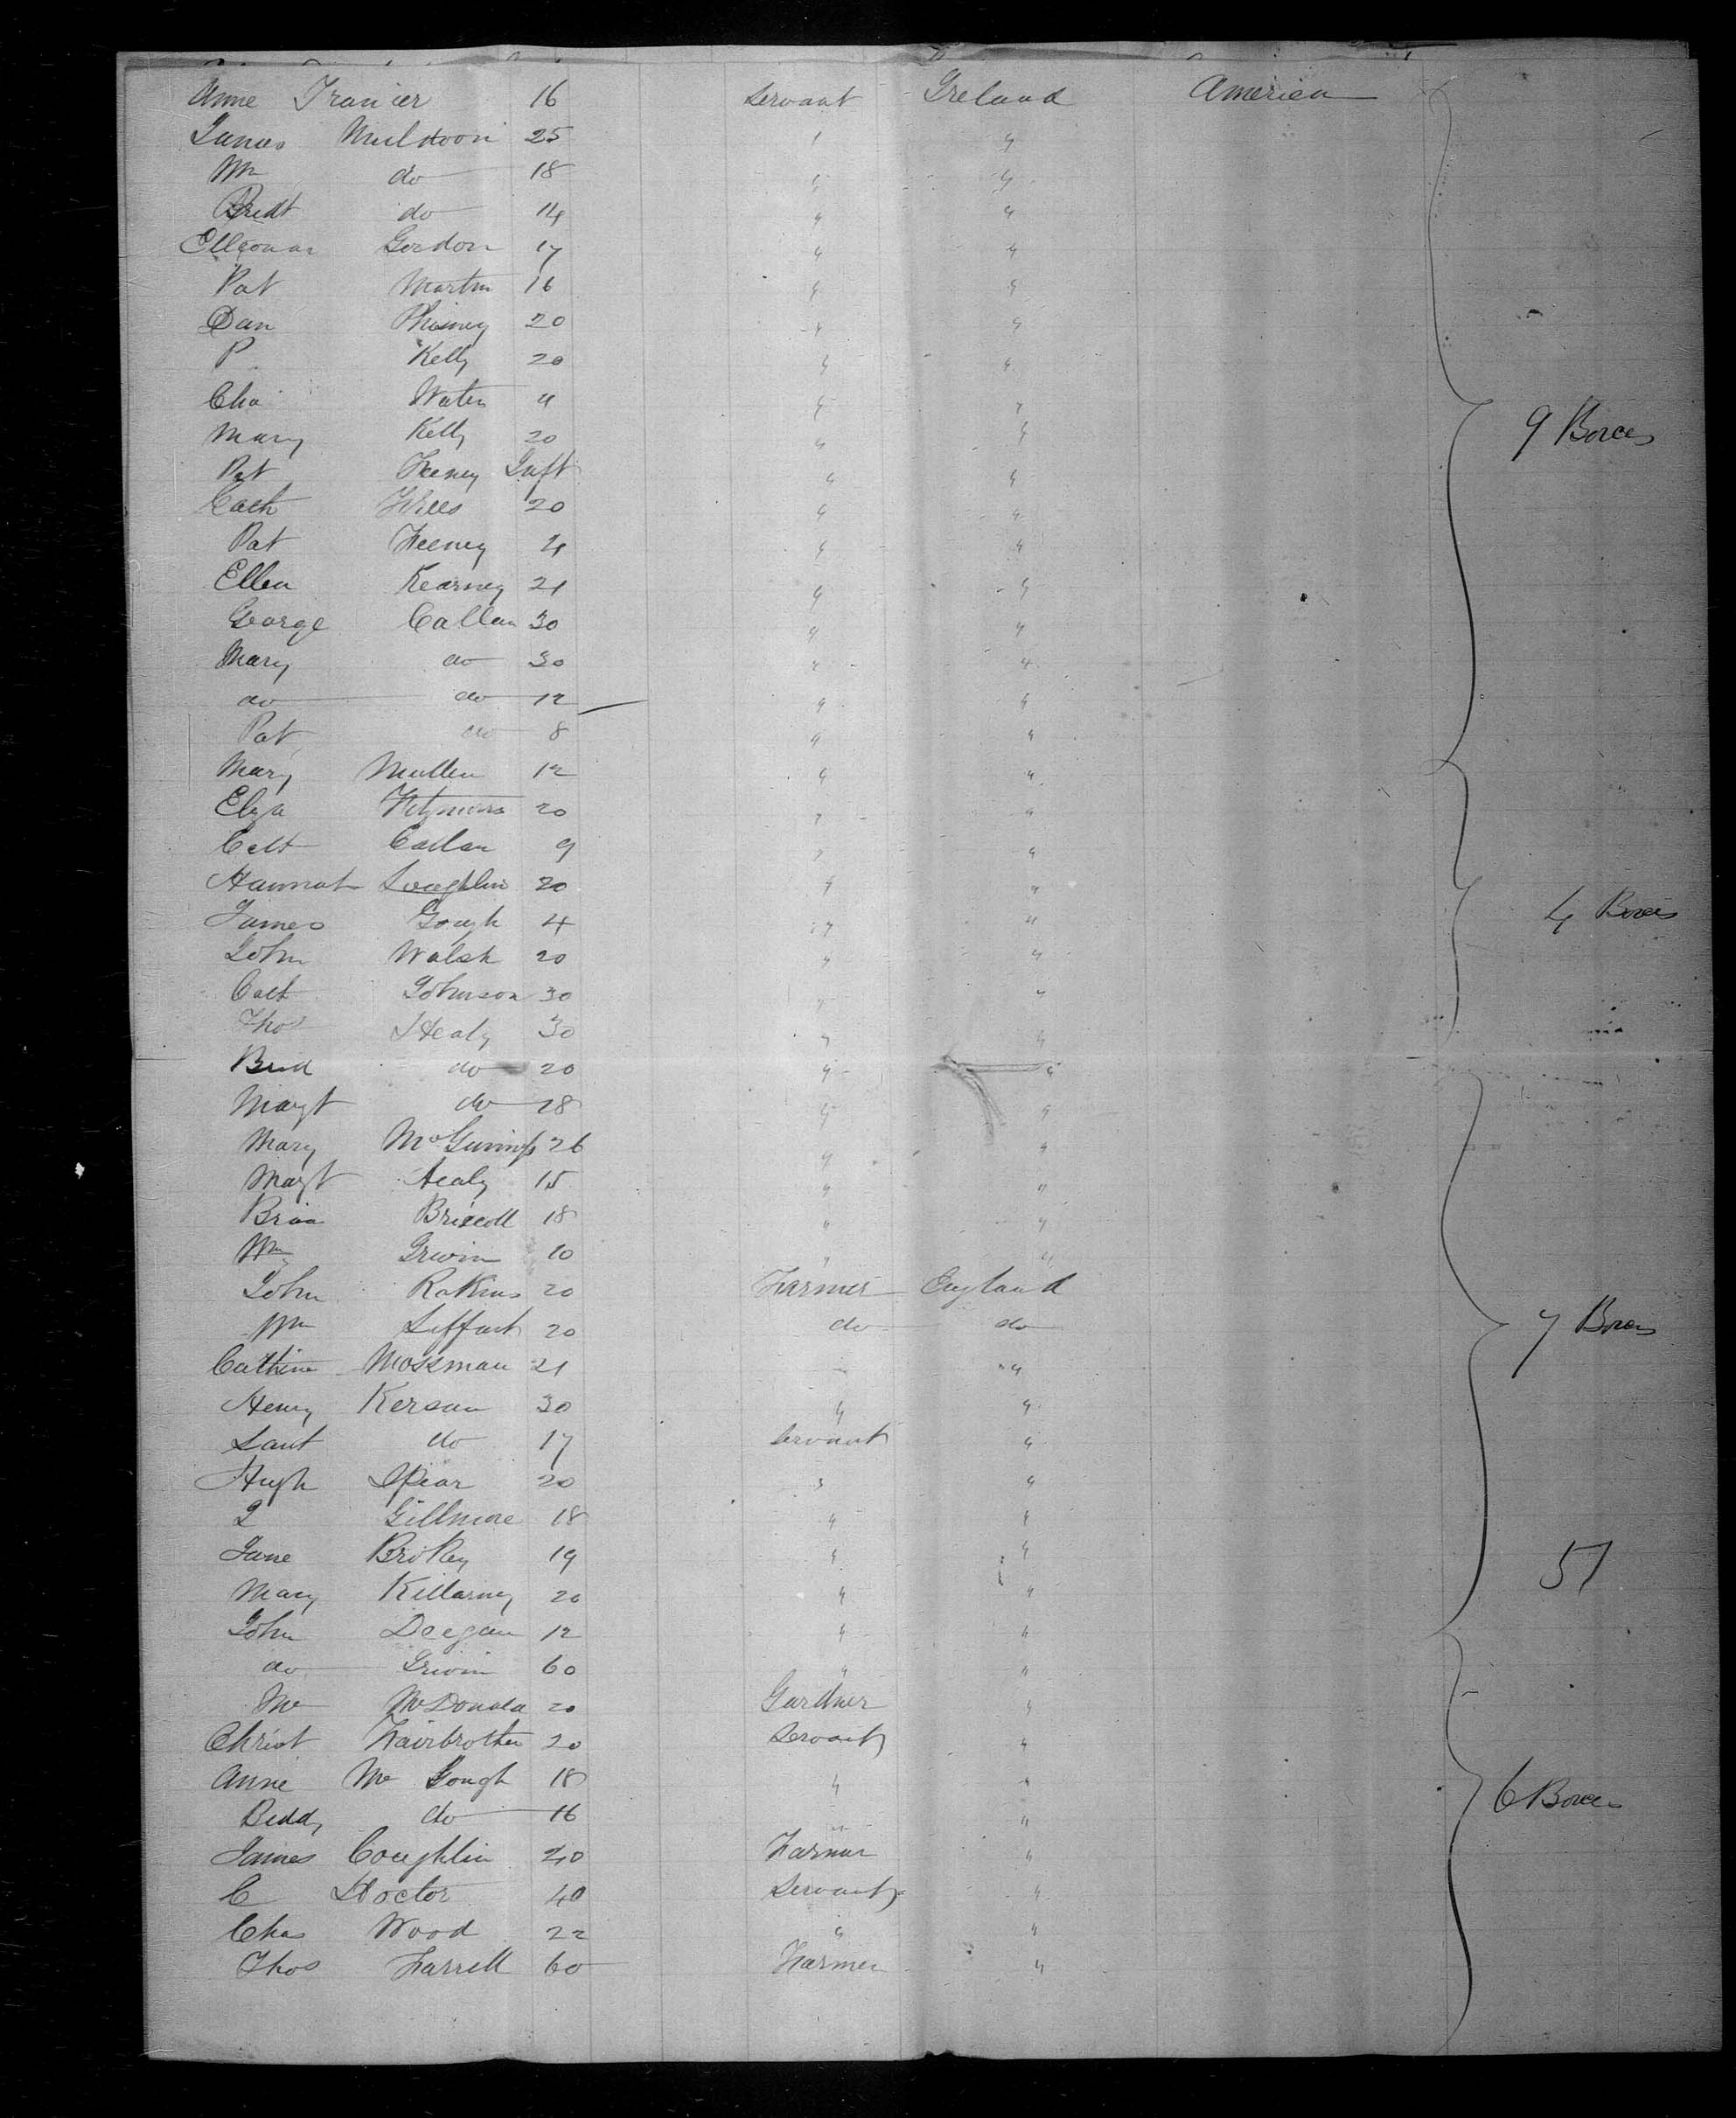 Anne Franier 16 Servant Ireland America
James Muldoon 25 " "
Wm do 18 " "
Bridt do 14 " "
Elleonar Gordon 17 " "
Pat Martin 16 " "
Dan 20 " "
P. Kelly 20 " "
Cha Waters " "
Mary Kelly 20 " "
9 Boxes
Pat Feeney Inft " "
Cath 20 " "
Pat Feeney " "
Ellen Kearney 21 " "
George Callan 30 " "
Mary do 30 " "
do do 12 " "
Pat do 8 " "
Mary Mullen 12 " "
Eliza 20 " "
Cath Callan 9 " "
Hannah Loughlin 20 " "
James Gough 4 " "
4 Boxes
John Walsh 20 " "
Cath Johnson 30 " "
Thos Healy 30 " "
Brid do 20 " "
Margt do 28 " "
Mary McGuiniss 26 " "
Margt Healy 15 " "
Briscoll 18 " "
Wm Irwin 10 " "
John Rokins 20 Farmer England
Wm 20 do do
7 Boxes
Cathine Mossman 21 " "
Henry Kersan 30 " "
do 17 Servant "
Hugh Spear 20 " "
J Gillmore 18 " "
Jane 19 " "
57
Mary Killarney 20 " "
John Deegan 12 " "
do Irwin 60 " "
McDonald 20 Gardner "
Christ Fairbrother 20 Servant "
Anne Mc Gough 18 " "
6 Boxes
Biddy do 16 " "
James Coughlin 20 Farmer "
C Doctor 40 Servant "
Chas Wood 22 " "
Thos Farrell 60 Farmer "